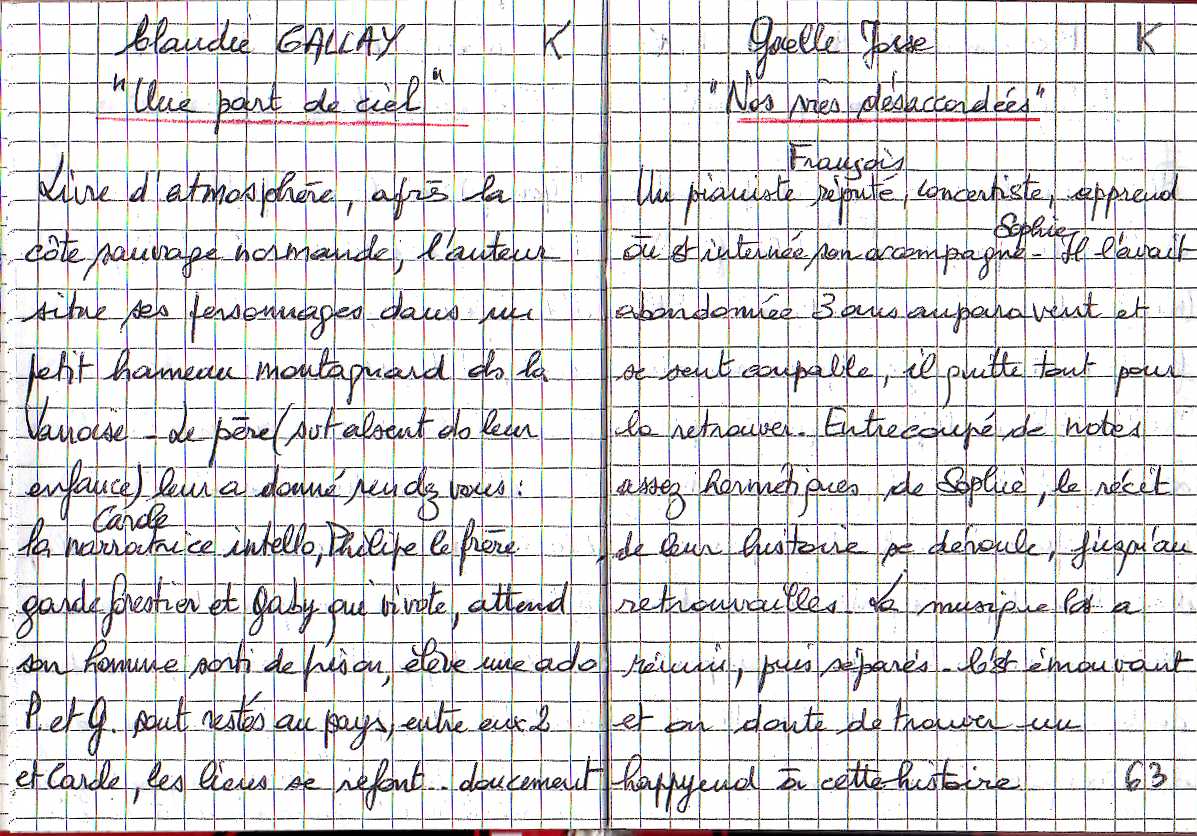 Claudie GALLAY K
"Une part de ciel"
Livre d'atmosphère, après la
côte sauvage normande, l'auteur
situe ses personnages dans un
petit hameau montagnard ds la
Vanoise - Le père (svt absent ds leur
enfance) leur a donné rendez vous :
Carole
la narratrice intello, Philipe le frère
garde forestier et Gaby qui vivote, attend
son homme sorti de prison, élève une ado
P. et G. sont restés au pays, entre eux 2
et Carole, les liens se refont.. doucement
Gaelle Josse K
"Nos vies désaccordées"
François
Un pianiste réputé, concertiste, apprend
Sophie
où est internée son accompagne - Il l'avait
abandonnée 3 ans auparavent et
se sent coupable, il quitte tout pour
la retrouver. Entrecoupé de notes
assez hermétiques de Sophie, le récit
de leur histoire se déroule, jusqu'au
retrouvailles. La musique les a
réunis, puis séparés - C'est émouvant
et on doute de trouver un
happyend à cette histoire 63